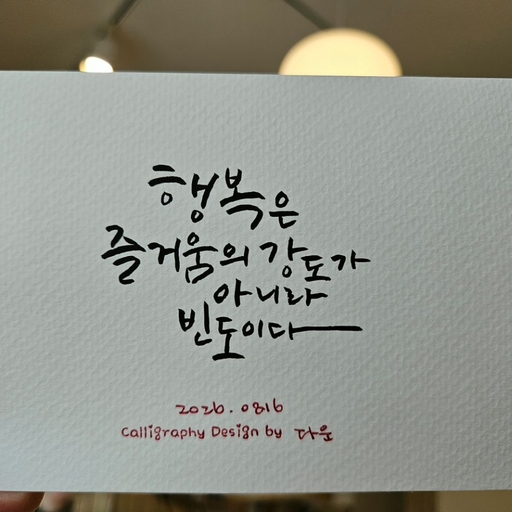 행복은
즐거움의 강도가
아니라
빈도이다
2026. 0816
Calligraphy Design by 다운